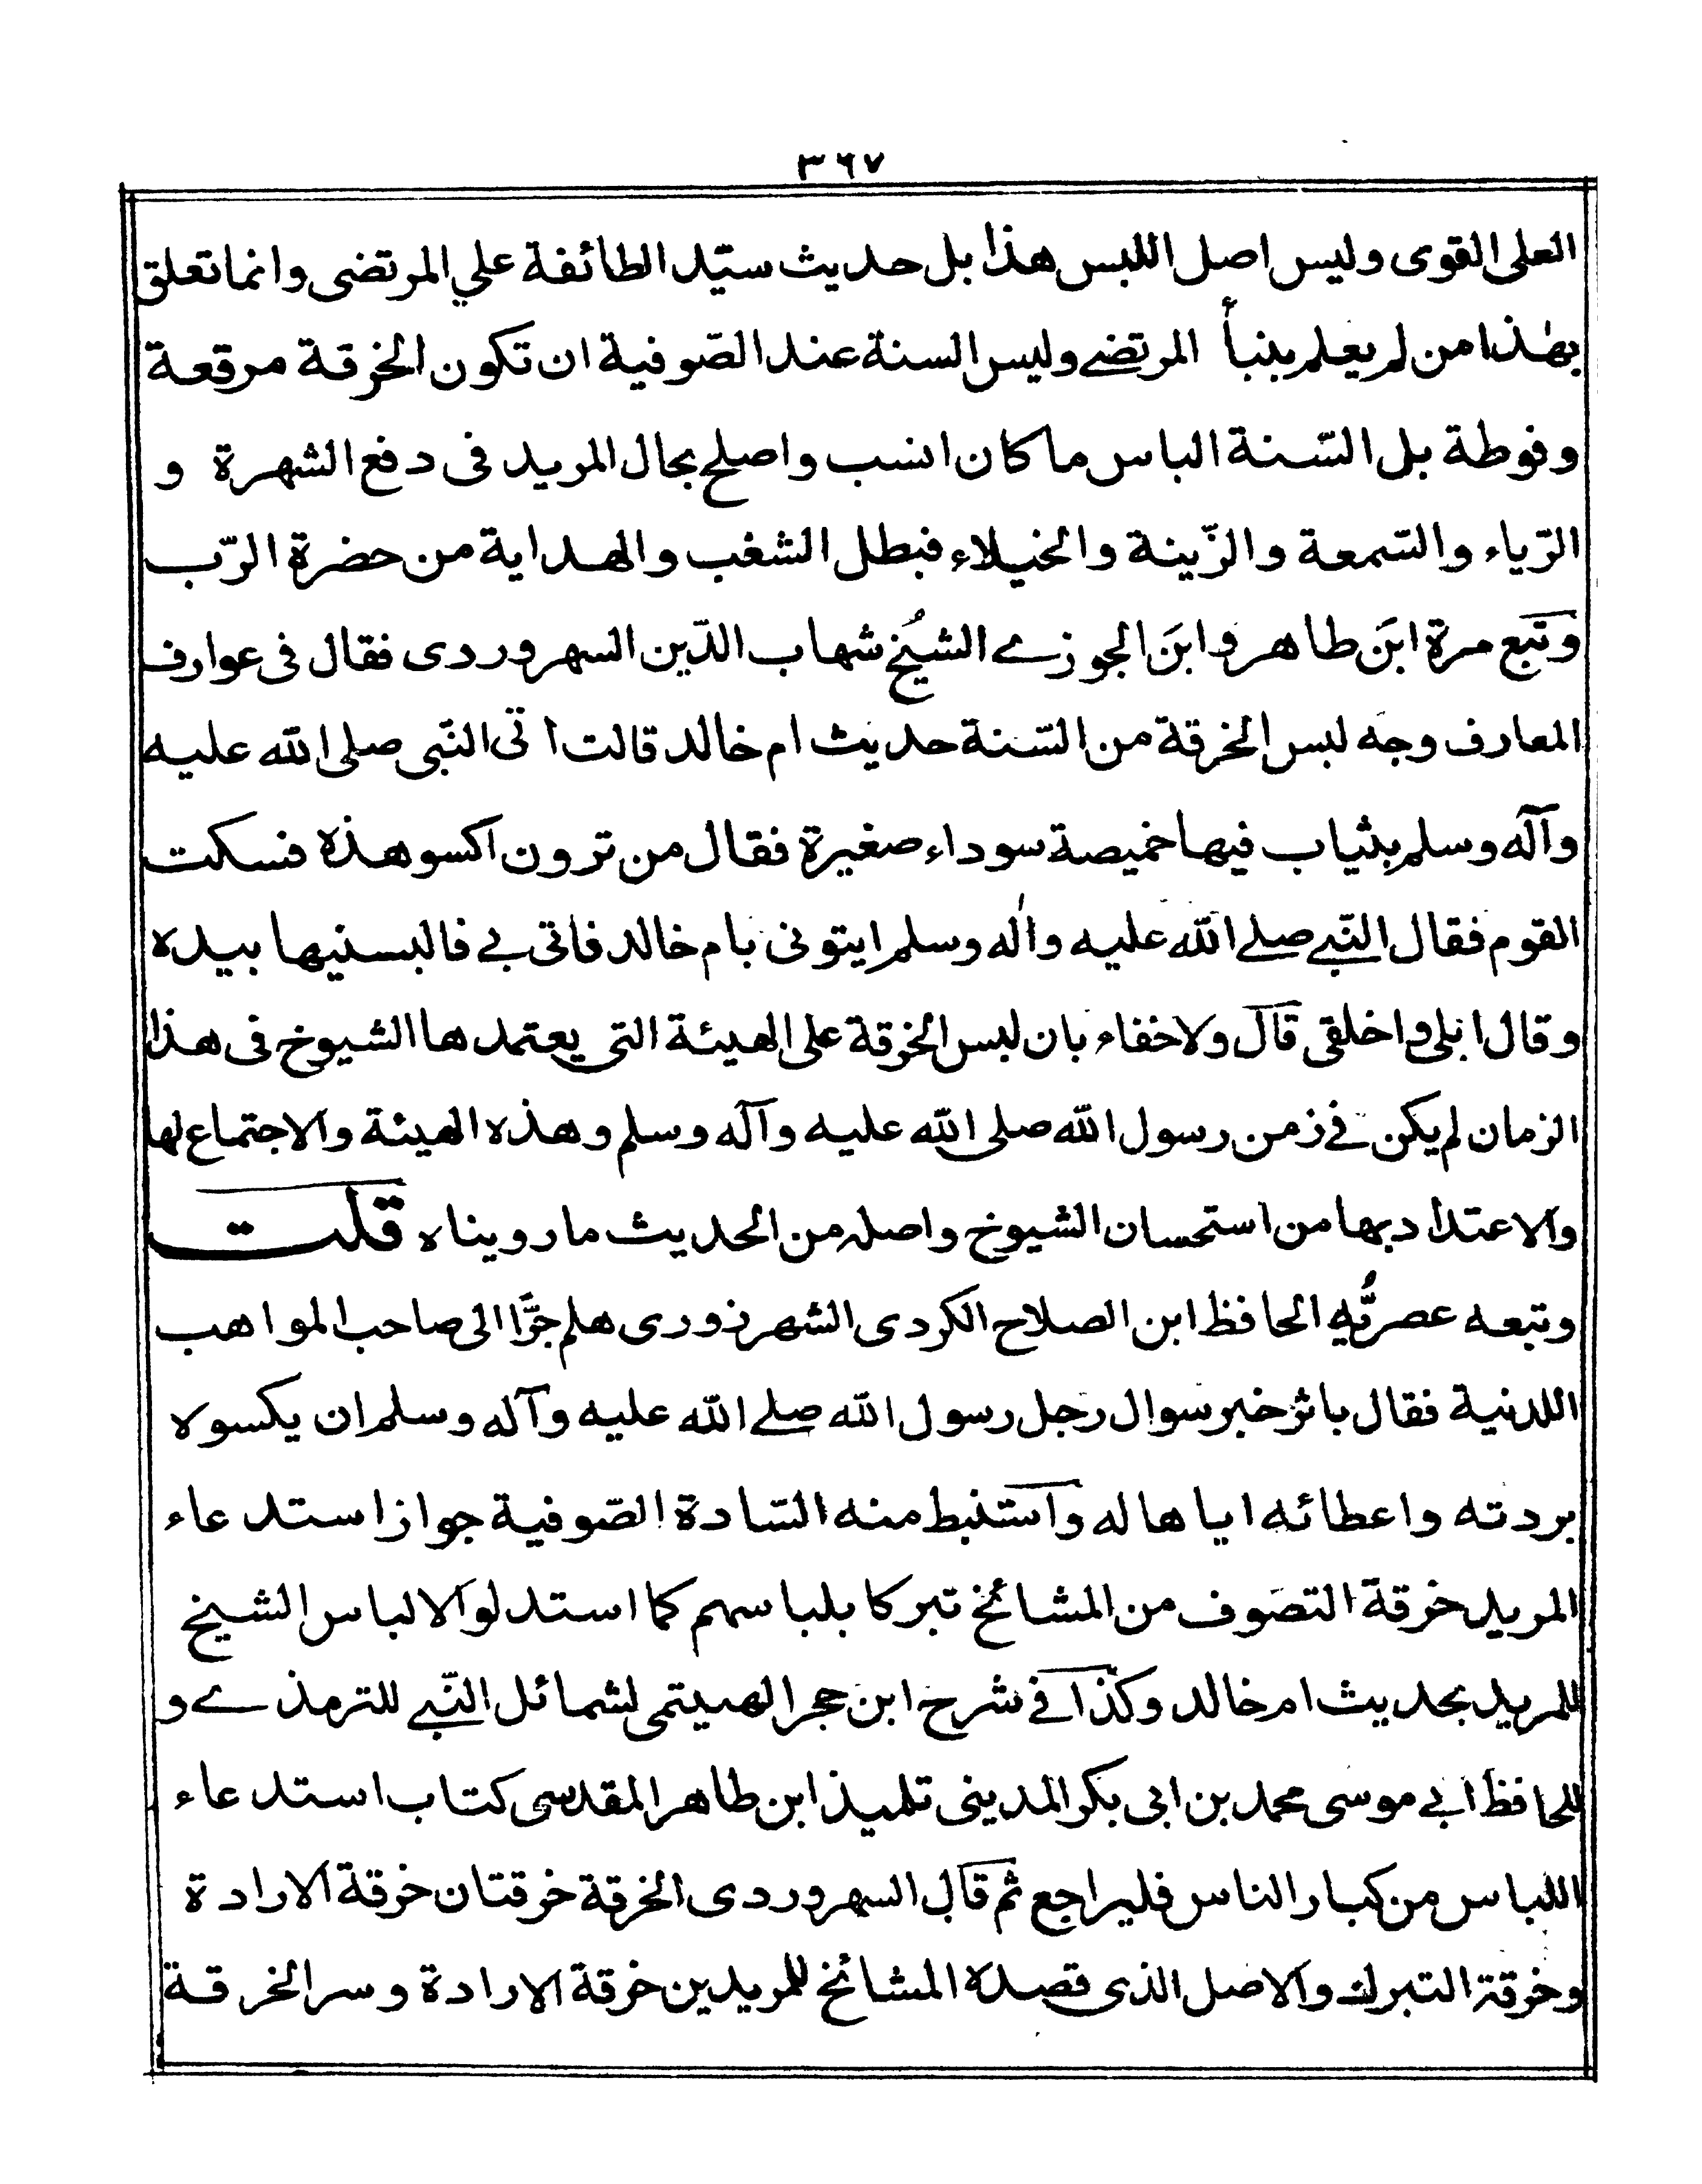 ٣٦٧
العلى القوى وليس اصل اللبس هذا بل حديث سيّد الطائفة علي المرتضى وانما تعلق
بهذا من لم يعلم بنبأ المرتضے وليس السنة عند الصّوفية ان تكون الخرقة مرقعة
وفوطة بل السّنة الباس ما كان انسب واصلح بحال المريد فى دفع الشهرة و
الرّياء والسّمعة والزّينة والخيلاء فبطل الشغب والهداية من حضرة الرّب
وتبع مرة ابن طاهر وابن الجوزے الشيخ شهاب الدّين السهروردى فقال فى عوارف
المعارف وجه لبس الخرقة من السّنة حديث ام خالد قالت اتى النّبى صلى الله عليه
وآله وسلم بثياب فيها خميصة سوداء صغيرة فقال من ترون اكسو هذه فسكت
القوم فقال النّبے صلے الله عليه واله وسلم ايتونى بام خالد فاتى بے فالبسنيها بيده
وقال ابلى واخلقى قال ولا خفاء بان لبس الخرقة على الهيئة التى يعتمدها الشيوخ فى هذا
الزمان لم يكن فے زمن رسول الله صلى الله عليه وآله وسلم وهذه الهيئة والاجتماع لها
والاعتداد بها من استحسان الشيوخ واصله من الحديث ما رويناه قلت
وتبعه عصريُّه الحافظ ابن الصلاح الكردى الشهرزورى هلم جرَّا الى صاحب المواهب
اللدنية فقال باثر خبر سوال رجل رسول الله صلے الله عليه وآله وسلم ان يكسوه
بردته واعطائه اياها له واستنبط منه السّادة الصّوفية جواز استدعاء
المريد خرقة التصّوف من المشائخ تبركا بلباسهم كما استدلوا لالباس الشيخ
للمريد بحديث ام خالد وكذا فے شرح ابن حجر الهيتمى لشمائل النّبے للترمذے و
للحافظ ابے موسى محمد بن ابى بكر المدينى تلميذ ابن طاهر المقدسى كتاب استدعاء
اللباس من كبار الناس فليراجع ثم قال السهروردى الخرقة خرقتان خرقة الارادة
وخرقة التبرك والاصل الذى قصده المشائخ للمريدين خرقة الارادة وسر الخرقة